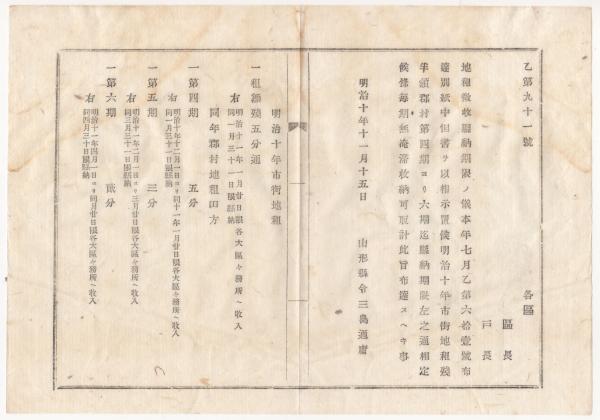 乙第九十一號
各區
區長
戸長
地租徴收縣納期限ノ儀本年七月乙第六拾壹號布
達別紙中但書ヲ以相示置候明治十年市街地租殘
半額郡村第四期ヨリ六期迄縣納期限左之通相定
候條毎期無淹滞收納可取計此旨布達スヘキ事
明治十年十一月十五日
山形縣令三島通庸
明治十年市街地租
一租額殘五分通
右明治十一年一月廿日限各大區々務所ヘ收入
同一月三十一日限縣納
同年郡村地租田方
一第四期 五分
右明治十年十二月一日ヨリ同十一年一月廿日限各大區々務所ヘ收入
同一月三十一日限縣納
一第五期 三分
右明治十一年二月一日ヨリ三月廿日限各大區々務所ヘ收入
同三月三十一日限縣納
一第六期 貳分
右明治十一年四月一日ヨリ同月廿日限各大區々務所ヘ收入
同四月三十日限縣納